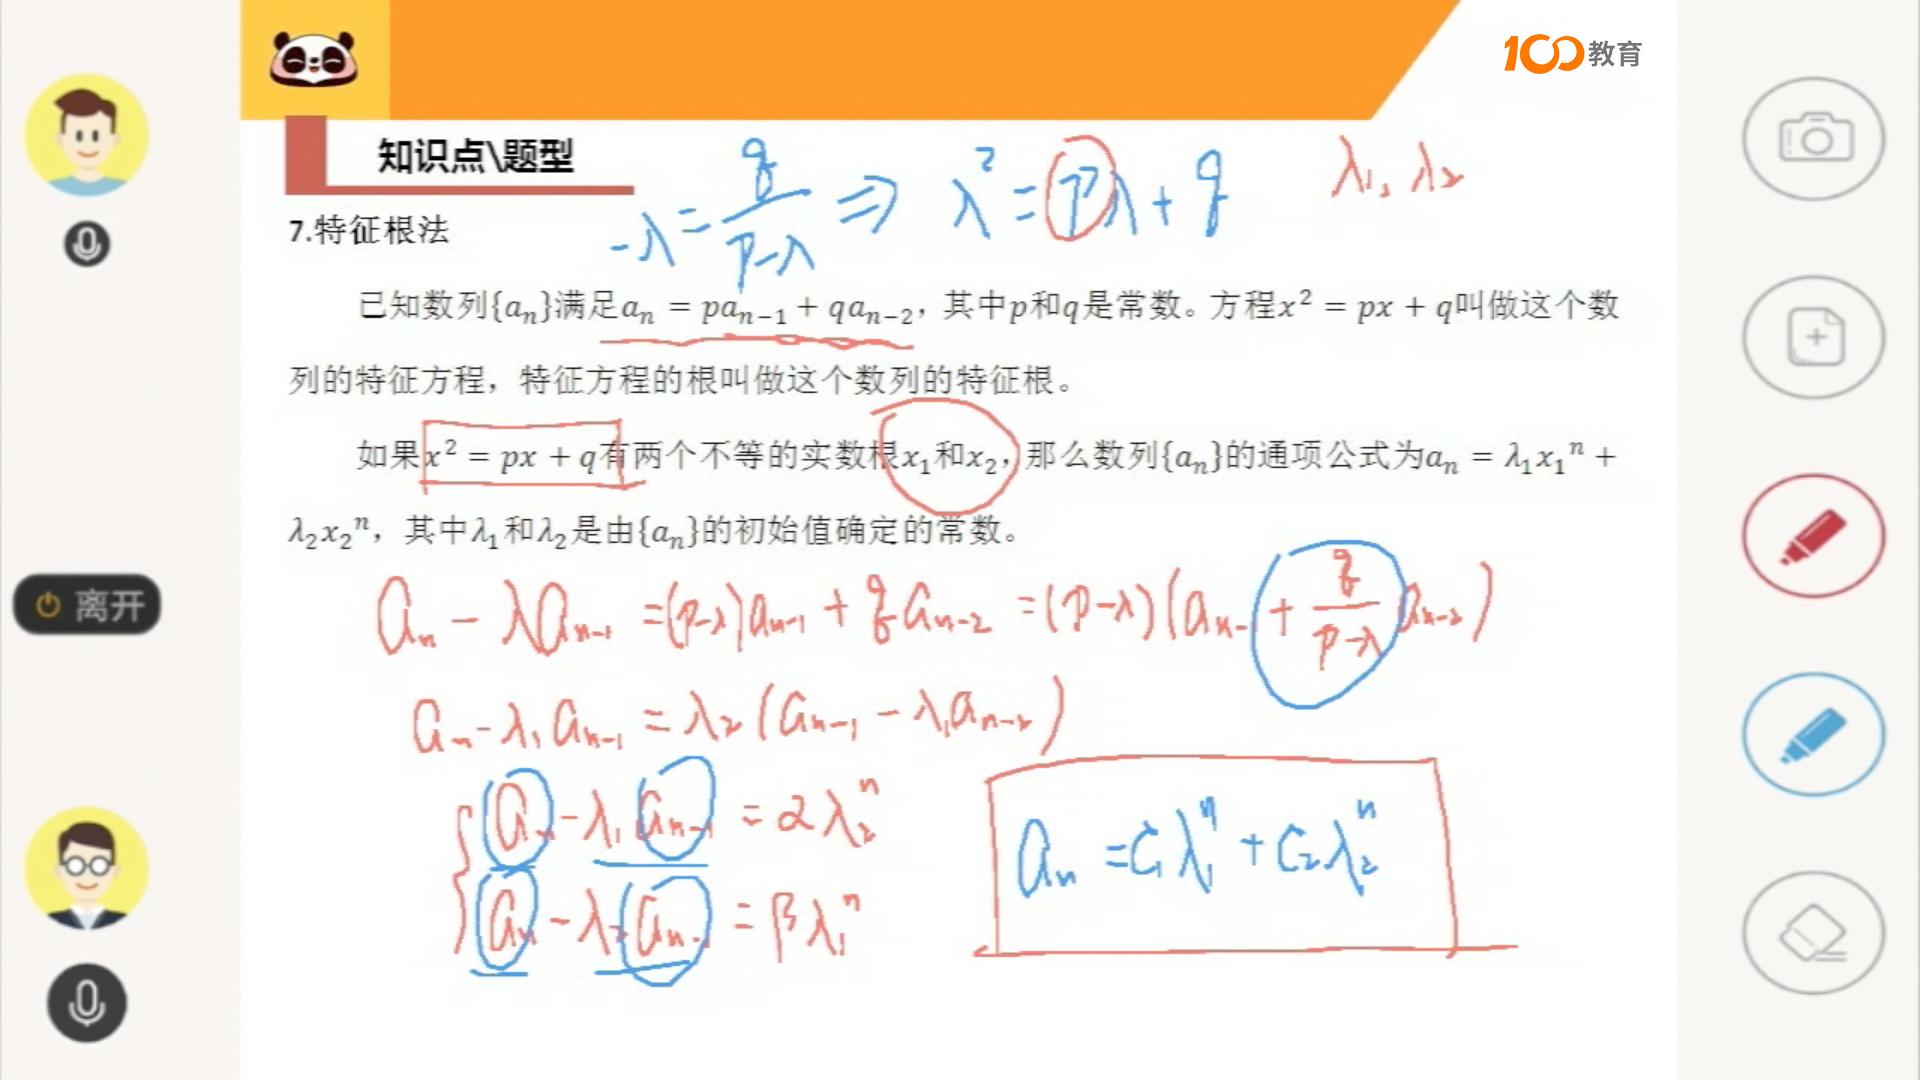 100教育
知识点\题型
-λ = q/(p-λ) ⇒ λ² = pλ + q
λ₁, λ₂
7.特征根法
已知数列{aₙ}满足aₙ = paₙ₋₁ + qaₙ₋₂，其中p和q是常数。方程x² = px + q叫做这个数
列的特征方程，特征方程的根叫做这个数列的特征根。
如果x² = px + q有两个不等的实数根x₁和x₂，那么数列{aₙ}的通项公式为aₙ = λ₁x₁ⁿ +
λ₂x₂ⁿ，其中λ₁和λ₂是由{aₙ}的初始值确定的常数。
离开
aₙ - λaₙ₋₁ = (p-λ)aₙ₋₁ + qaₙ₋₂ = (p-λ)(aₙ₋ + q/(p-λ) aₙ₋₂)
aₙ - λ₁aₙ₋₁ = λ₂(aₙ₋₁ - λ₁aₙ₋₂)
aₙ - λ₁aₙ₋₁ = αλ₂ⁿ
aₙ - λ₂aₙ₋₁ = βλ₁ⁿ
aₙ = C₁λ₁ⁿ + C₂λ₂ⁿ